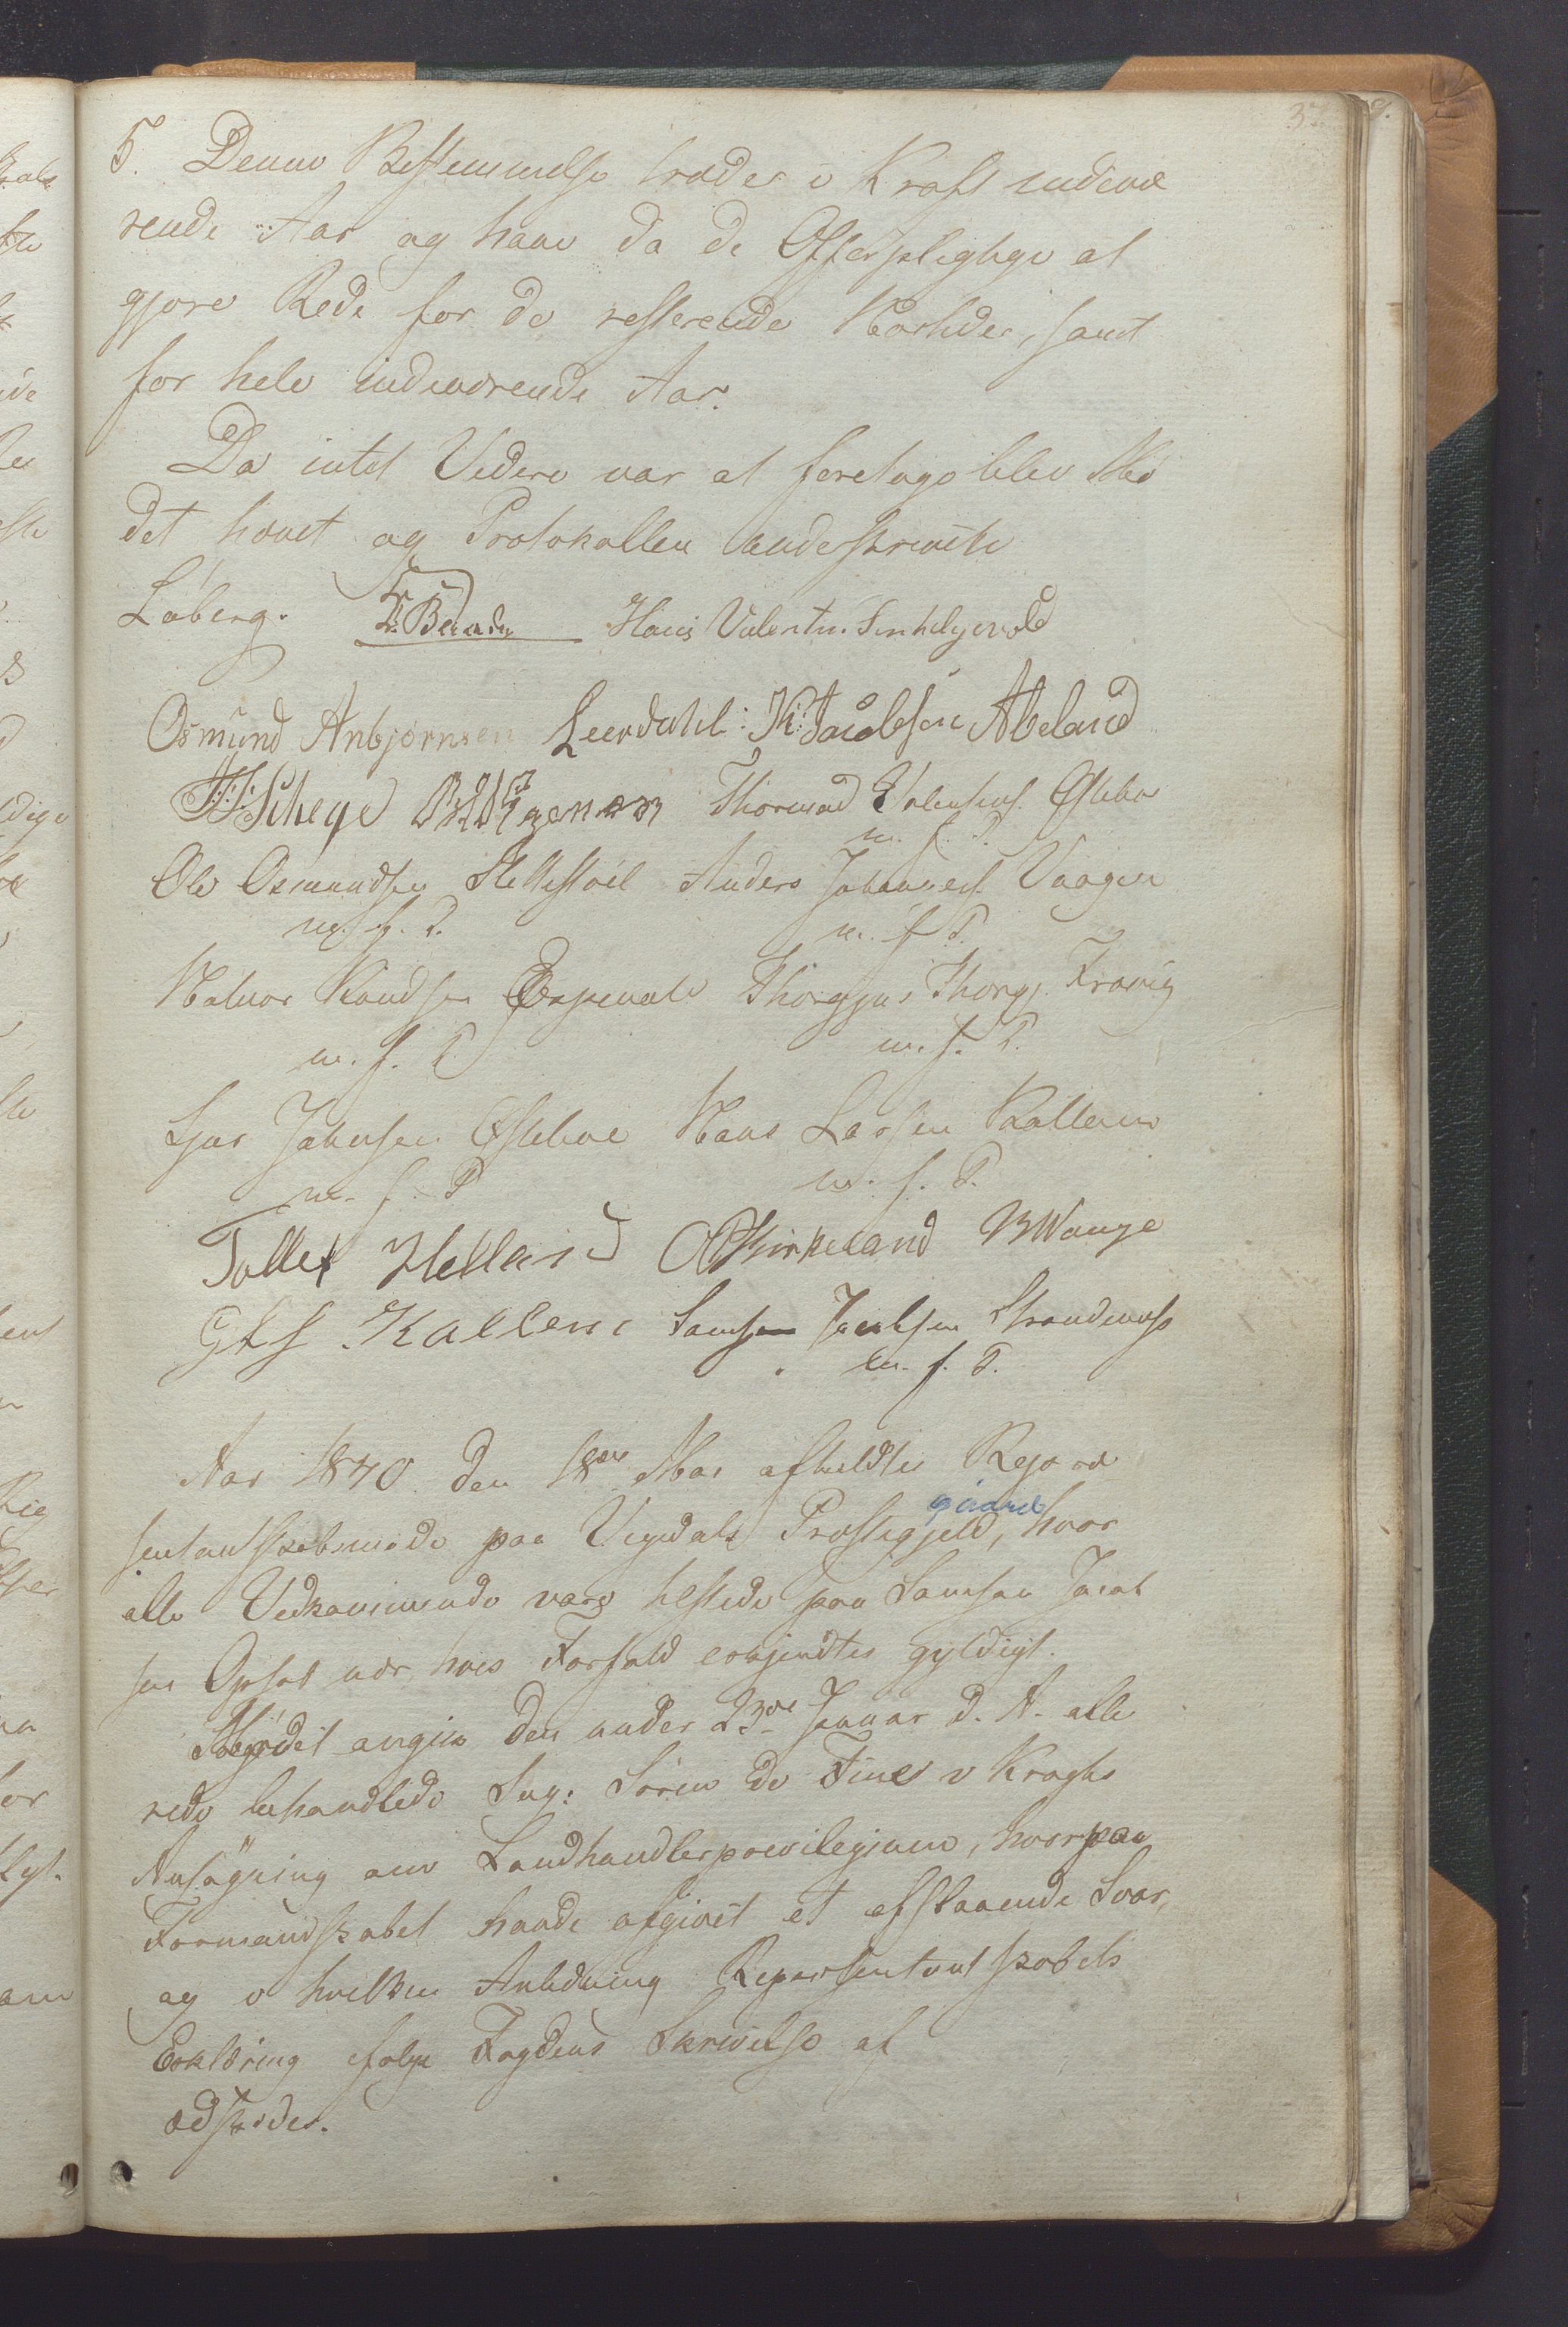 37
5. Denne Bestemmelse træder i Kraft indevæ
rende Aar og have da de Offerpligtige at
gjøre Rede for de resterende Høitider, samt
for hele indeværende Aar.
Da intet Videre var at foretage blev Mø
det hævet og Protokollen underskrevet
Løberg. Hans Valentin.
Osmund Anbjørnsen Leerdahl: K: Jacobsen Abeland
Thormod Østebø
m. f. P.
Ole Osmundsen Anders Johannes. Vaagen
m. f. P. m. f. P.
Halvor Knudsen Espevold Thorgjus Thorg.
m. f. P. m. f. P.
Johnsen Østeboe Hans Larsen Kallem
m. f. P. m. f. P.
Tollef Helland Birkeland
Kallem Samson Jacobsen
m. f. P.
Aar 1840 den 18de Mai afholdtes Repræ
sentantskabsmøde paa Vigedals Præstegjeld, gaard hvor
alle Vedkommende vare tilstede paa Samson Jacob
sen Opsal nær, hvis Forfald erkjendtes gyldigt.
Mødet angik den under 23de Januar d. A. alle
rede behandlede Sag: Søren de Fine v Kraghs
Ansøgning om Landhandlerprivilegium, hvorpaa
Formandskabet havde afgivet et afslaaende Svar,
og i hvilken Anledning Repræsentantskabets
Erklæring ifølge Fogdens Skrivelse af
ædskedes.